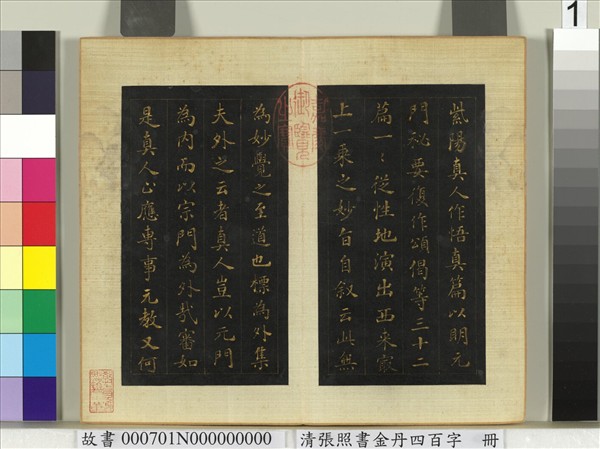 紫陽真人作悟真篇以明元
門祕要復作頌偈等三十二
篇一〻從性地演出西來最
上一乘之妙旨自敘云此無
為妙覺之至道也標為外集
夫外之云者真人豈以元門
為內而以宗門為外哉審如
是真人止應專事元教又何
1
故書 000701N000000000 清張照書金丹四百字 冊